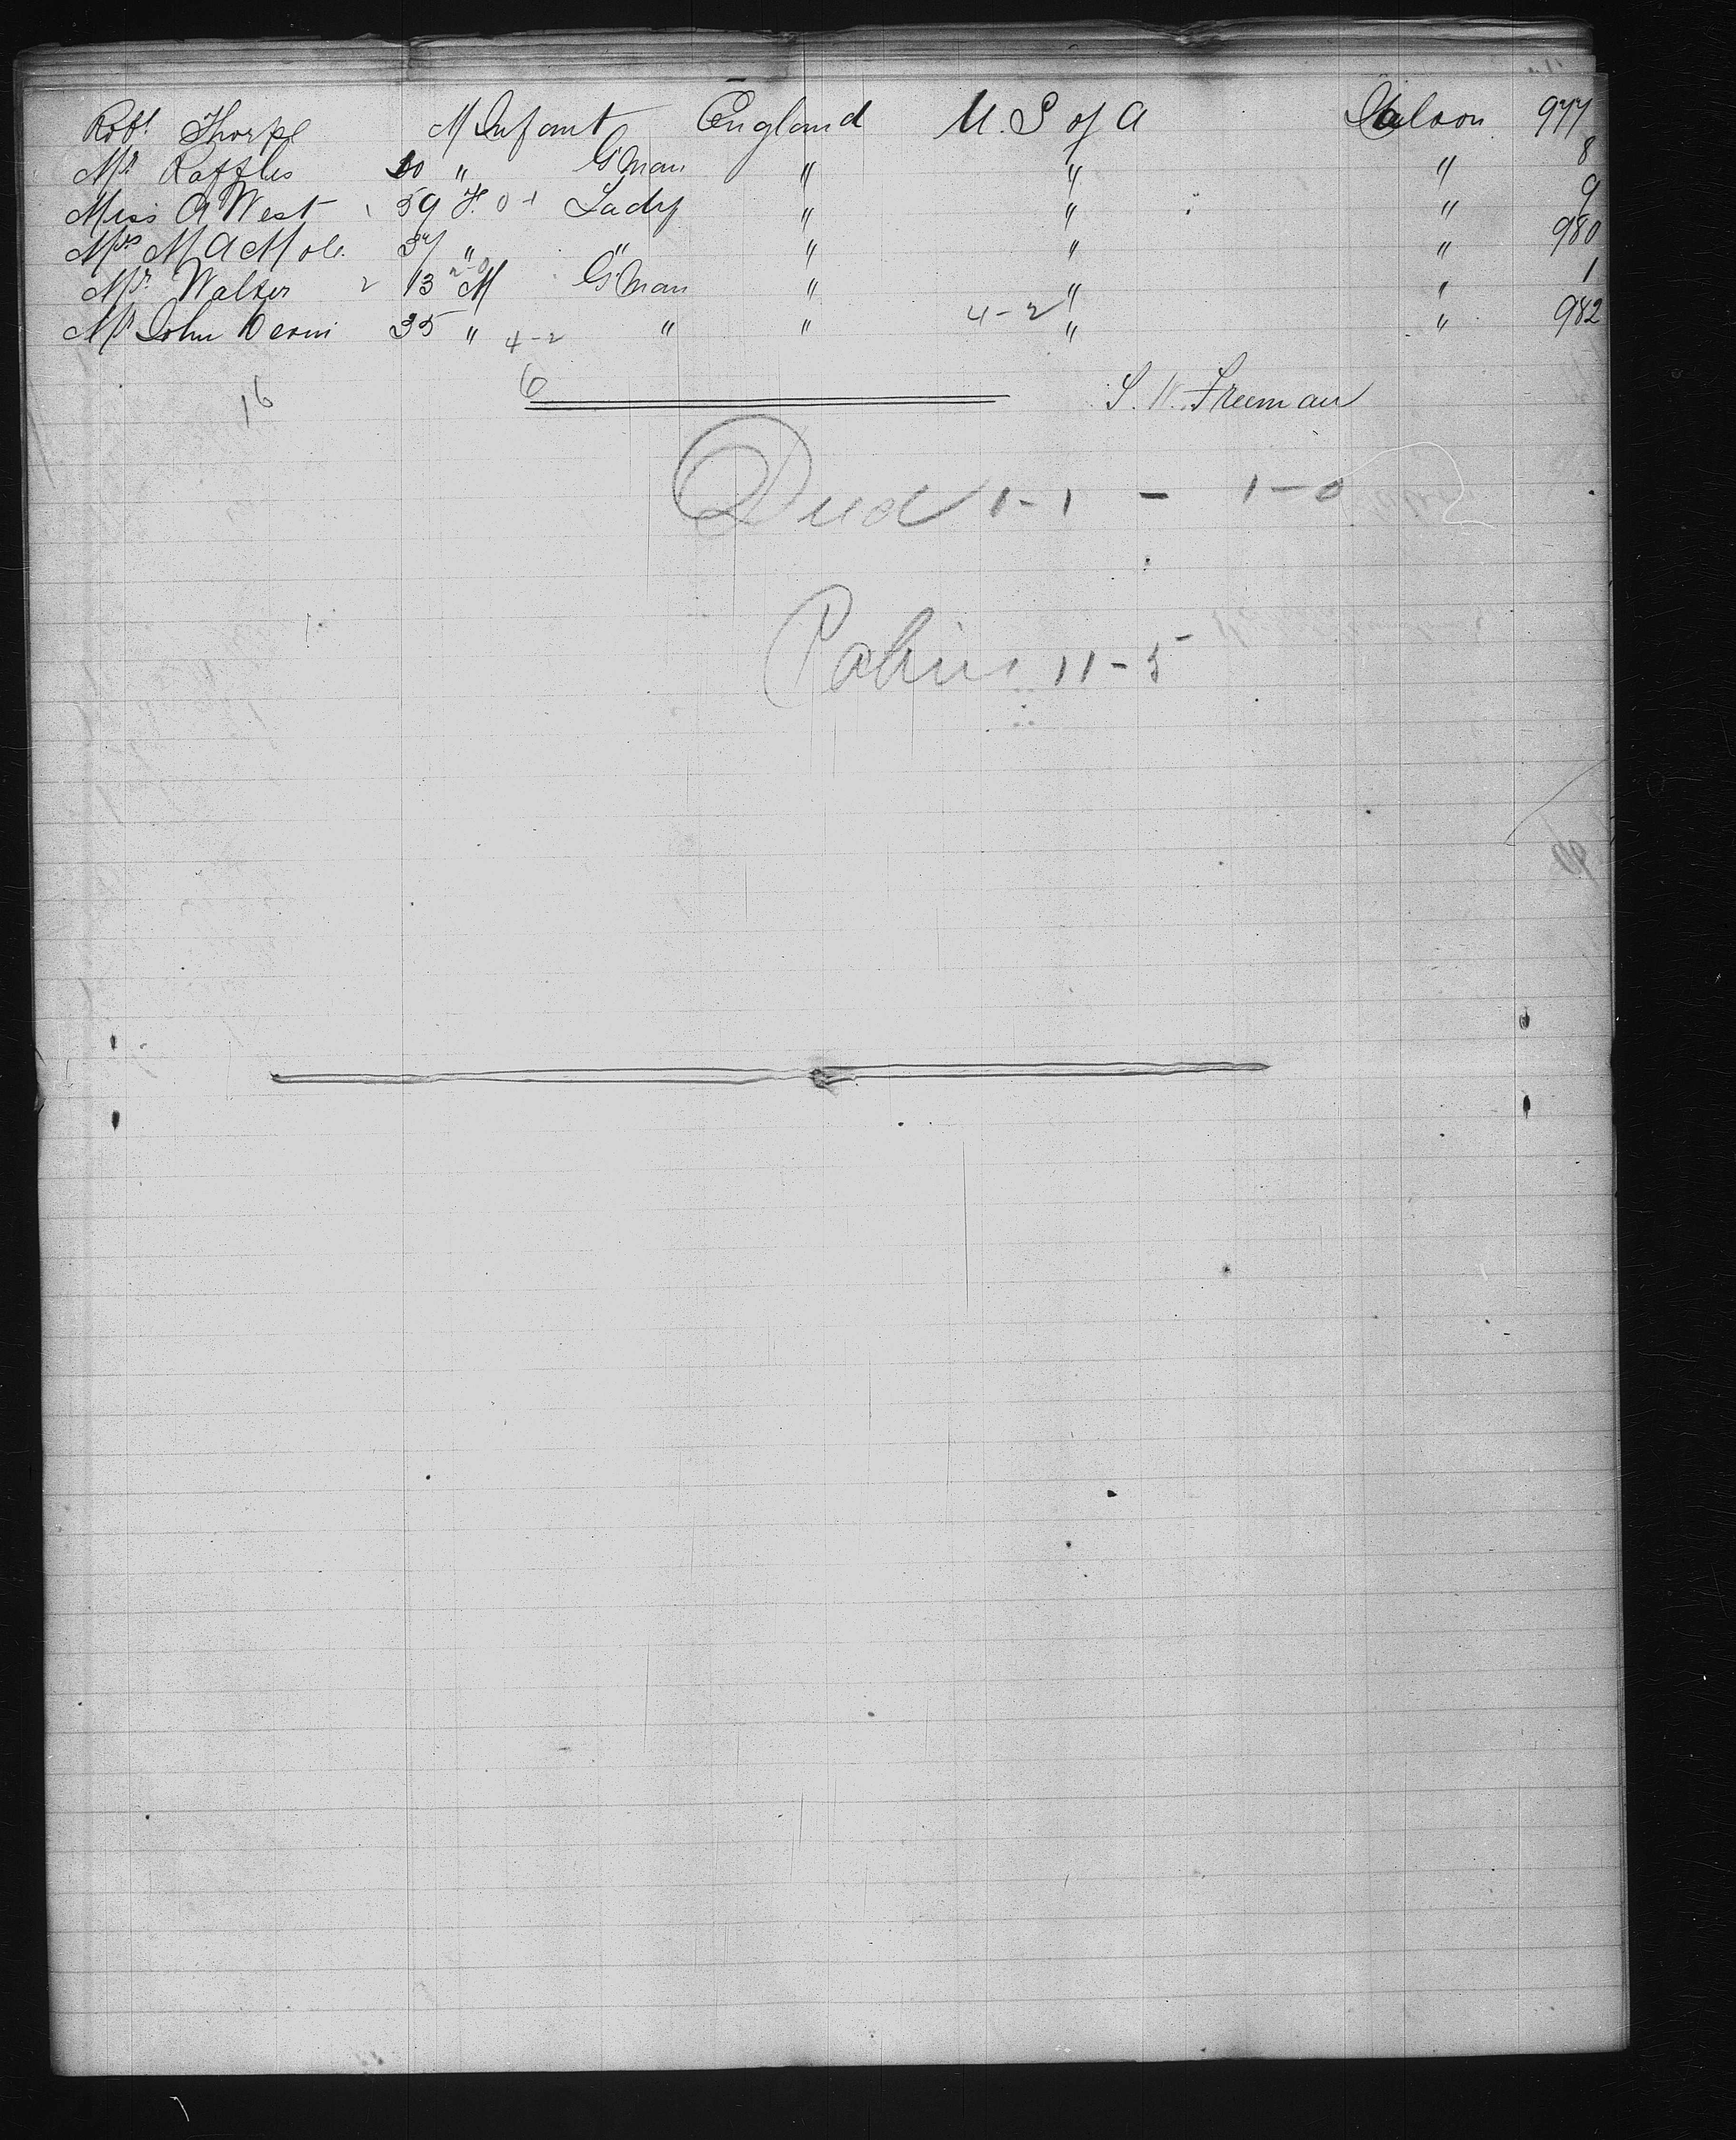 Robt Thorpe M Infant England U. S of A Saloon 977
Mr Raffles 20 " G'man " " " 8
Miss A West 59 F. 0-1 Lady " " " 9
Mrs M A Mole 37 " " " " " 980
Mr Walker 2 13 2-0 M G'man " " " 1
Mr John 35 " 4-2 " " 4-2 " " 982
16 6 S. W. Freeman
Died 1-1 - 1-0
Cabin 11-5